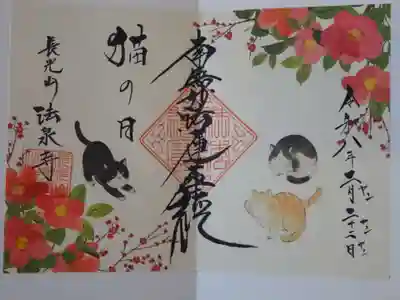 令和八年二月二十二日
南無妙法蓮華経
猫の日
長光山 法泉寺